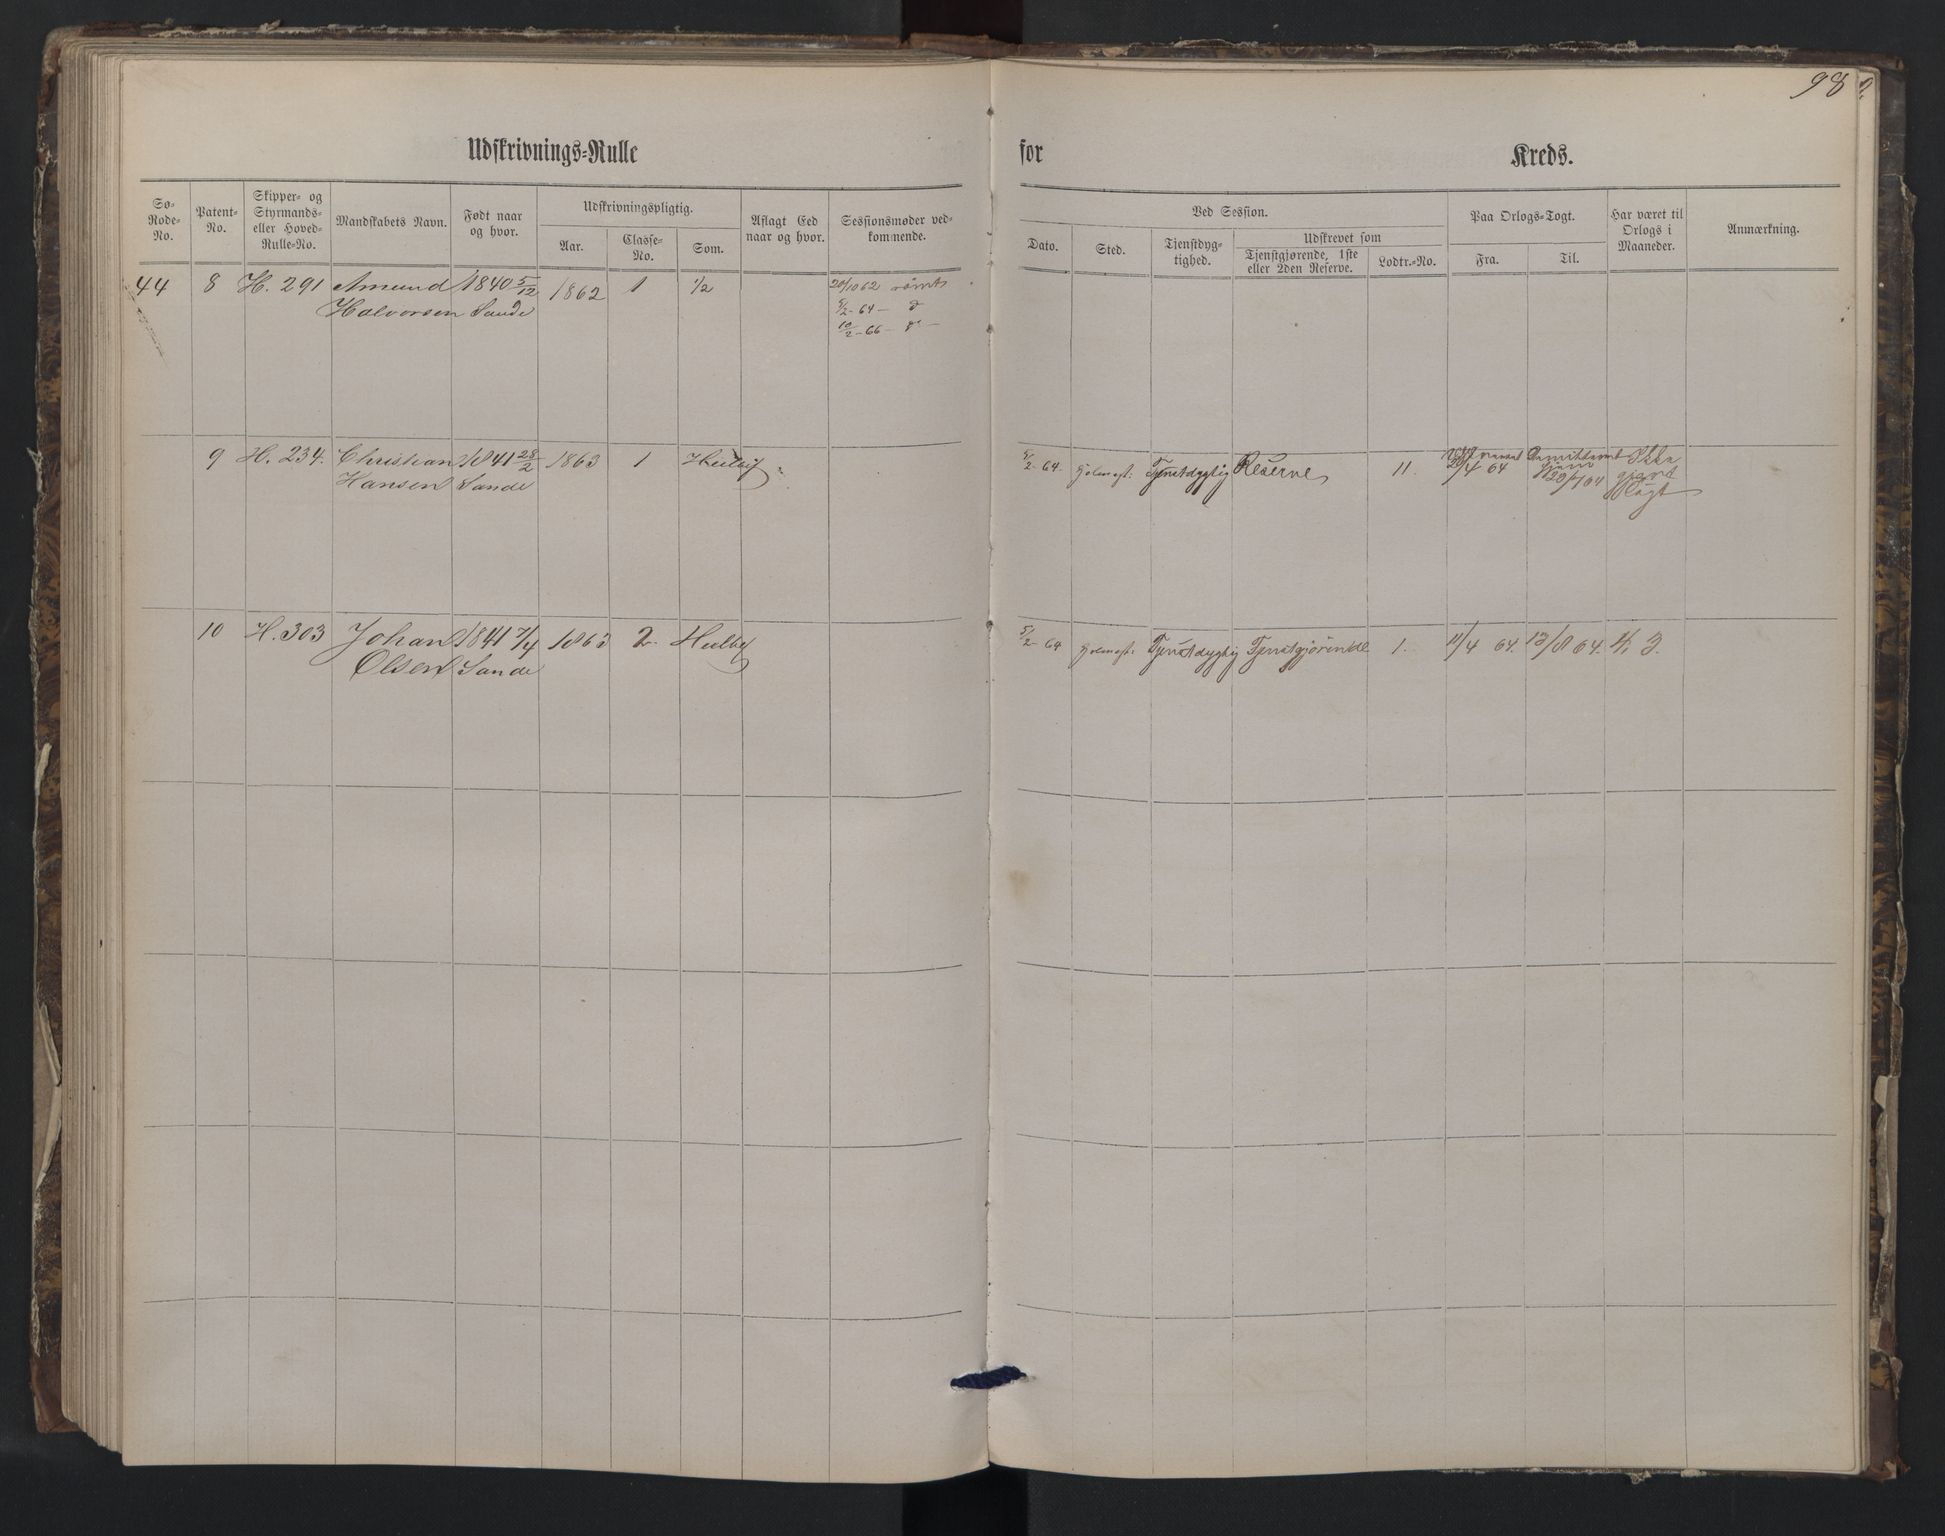 98
Udskrivnings-Rulle
for
Kreds.
Sø-Rode-No.
Patent-No.
Skipper- og Styrmands- eller Hoved-Rulle-No.
Mandskabets Navn.
Født naar og hvor.
Udskrivningspligtig.
Aar.
Classe-No.
Som.
Aflagt Eed naar og hvor.
Sessionsmøder vedkommende.
Ved Session.
Dato.
Sted.
Tjenstdygtighed.
Udskrevet som
Tjenstgjørende, 1ste eller 2den Reserve.
Lodtr.-No.
Paa Orlogs-Togt.
Fra.
Til.
Har været til Orlogs i Maaneder.
Anmærkning.
44 8 H. 291 Amund 1840 5/12 1862 1 1/2 20/10 62 rømt
Halvorsen Sande 5/2-64 - d
10/2-66 - d -
9 H. 234. Christian 1841 28/2 1863 1 Heelbef 5/2-64 Holmest: Tjenstdygtig Reserve 11. 20/4 64 20/4 64 Ikke
Hansen Sande gjort
Togt
10 H. 303 Johan 1841 7/4 1863 2 Heelbef 5/2-64 Holmest: Tjenstdygtig Tjenstgjørende 1. 11/4 64. 13/8 64. 4, 3.
Olsen Sande